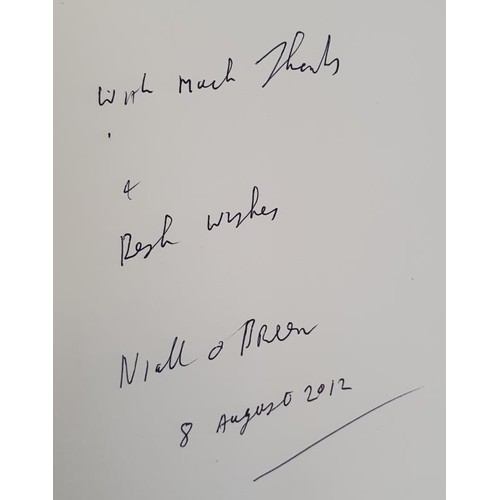 With Much Thanks
&
Best wishes
Niall O'Breen
8 August 2012